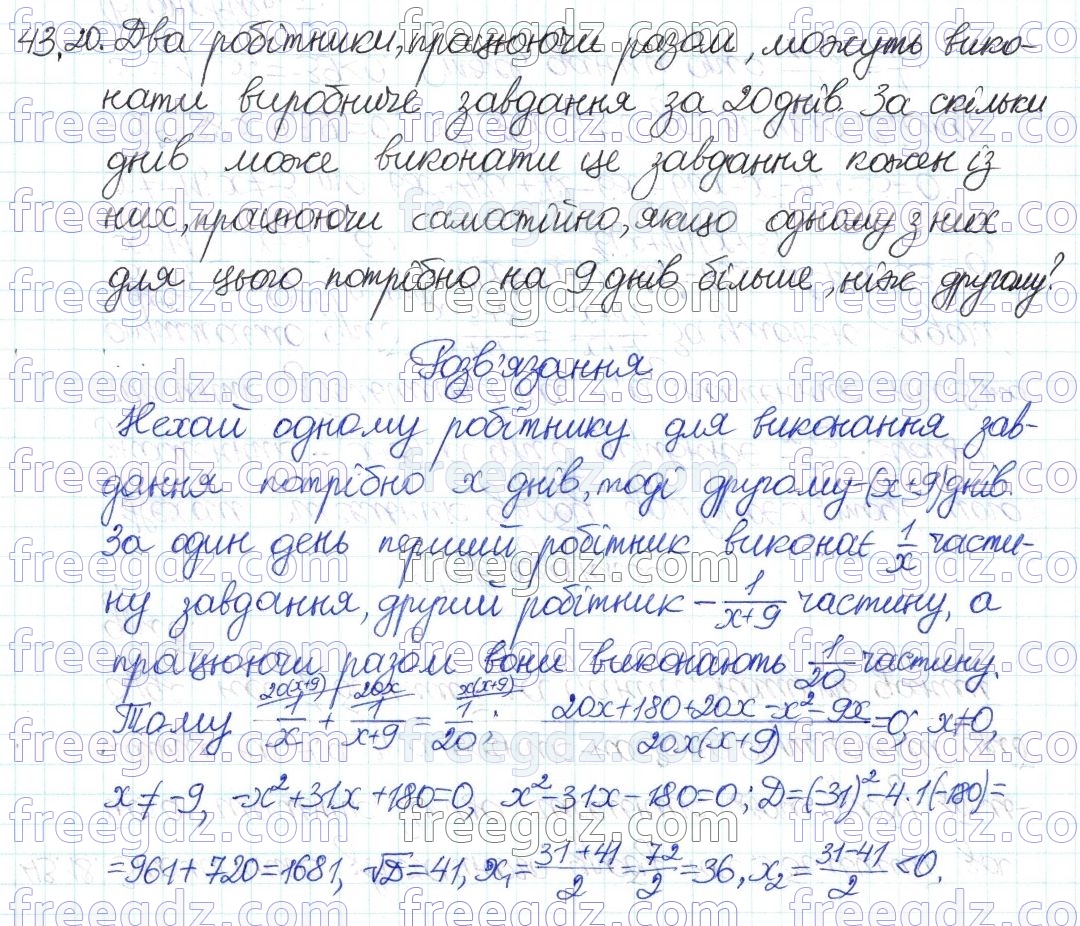 43.20. Два робітники, працюючи разом, можуть вико-
нати виробниче завдання за 20 днів. За скільки
днів може виконати це завдання кожен із
них, працюючи самостійно, якщо одному з них
для цього потрібно на 9 днів більше, ніж другому?
Розв'язання
Нехай одному робітнику для виконання зав-
дання потрібно x днів, тоді другому - (x+9) днів.
За один день перший робітник виконає 1/x части-
ну завдання, другий робітник - 1/(x+9) частину, а
працюючи разом вони виконають 1/20 частину.
20(x+9) 20x x(x+9)
Тому 1/x + 1/(x+9) = 1/20; (20x+180+20x-x²-9x)/(20x(x+9)) = 0; x≠0,
x≠-9, -x²+31x+180=0, x²-31x-180=0; D=(-31)²-4·1(-180)=
=961+720=1681, √D=41, x₁=(31+41)/2=72/2=36, x₂=(31-41)/2<0.
freegdz.com